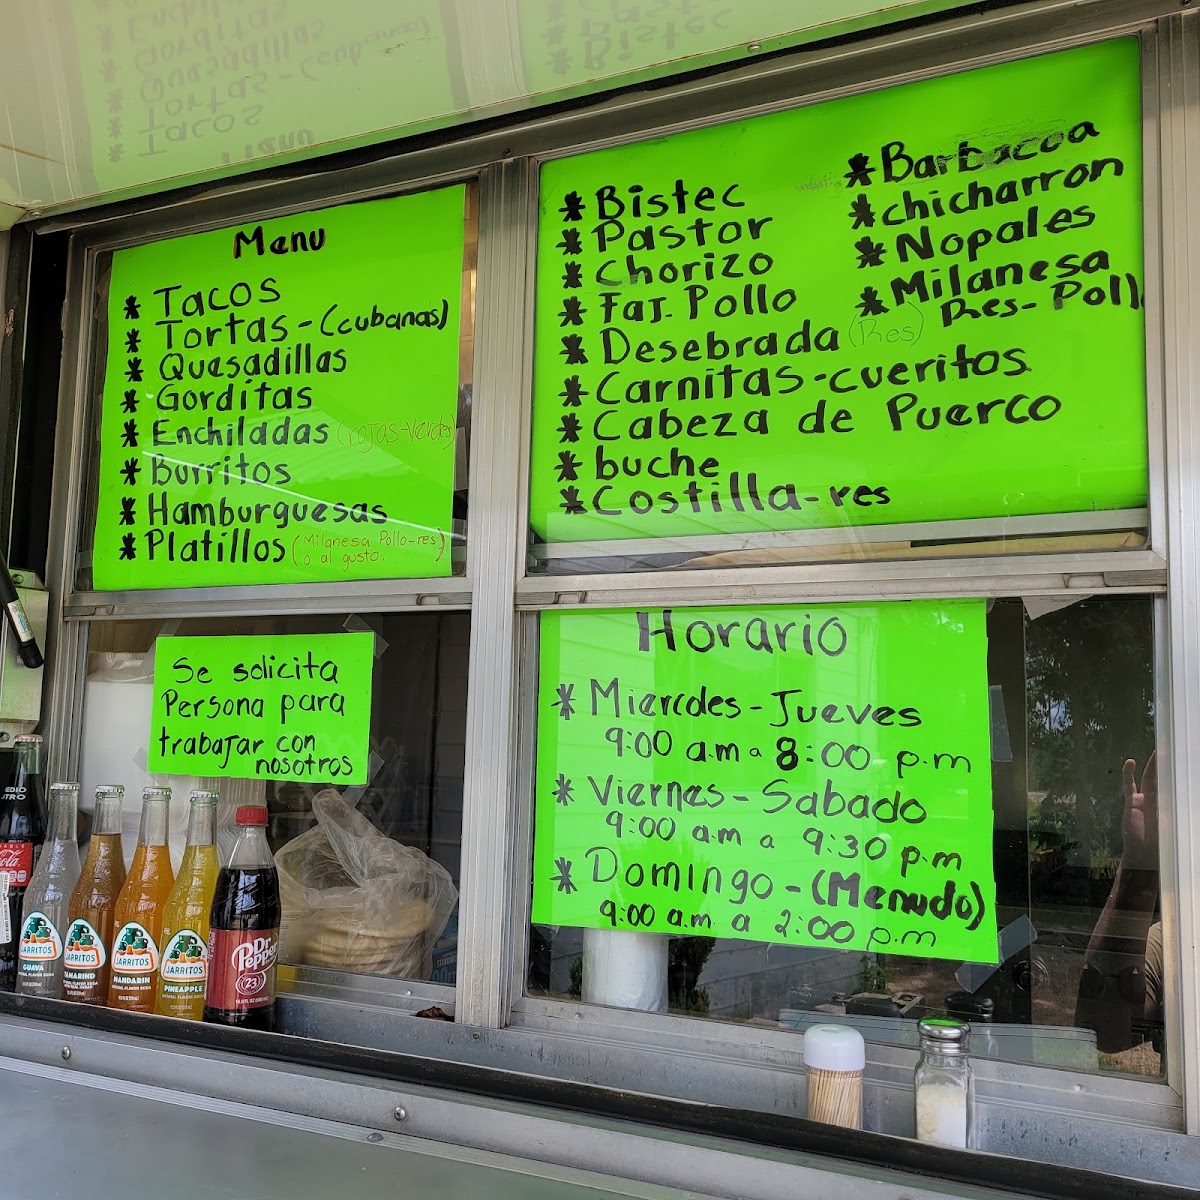 Menu
* Tacos
* Tortas-(cubanas)
* Quesadillas
* Gorditas
* Enchiladas (rojas-verdes)
* Burritos
* Hamburguesas
* Platillos (Milanesa Pollo-res)
o al gusto.
* Bistec
* Pastor
* Chorizo
* Faj. Pollo
* Desebrada (Res)
* Carnitas-cueritos
* Cabeza de Puerco
* buche
* Costilla-res
* Barbacoa
* chicharron
* Nopales
* Milanesa
Res-Poll
Se solicita
Persona para
trabajar con
nosotros
Horario
* Miercoles-Jueves
9:00 a.m a 8:00 p.m
* Viernes-Sabado
9:00 a.m a 9:30 p.m
* Domingo-(Menudo)
9:00 a.m. a 2:00 p.m
JARRITOS
GUAVA
JARRITOS
TAMARIND
JARRITOS
MANDARIN
JARRITOS
PINEAPPLE
Dr Pepper
23